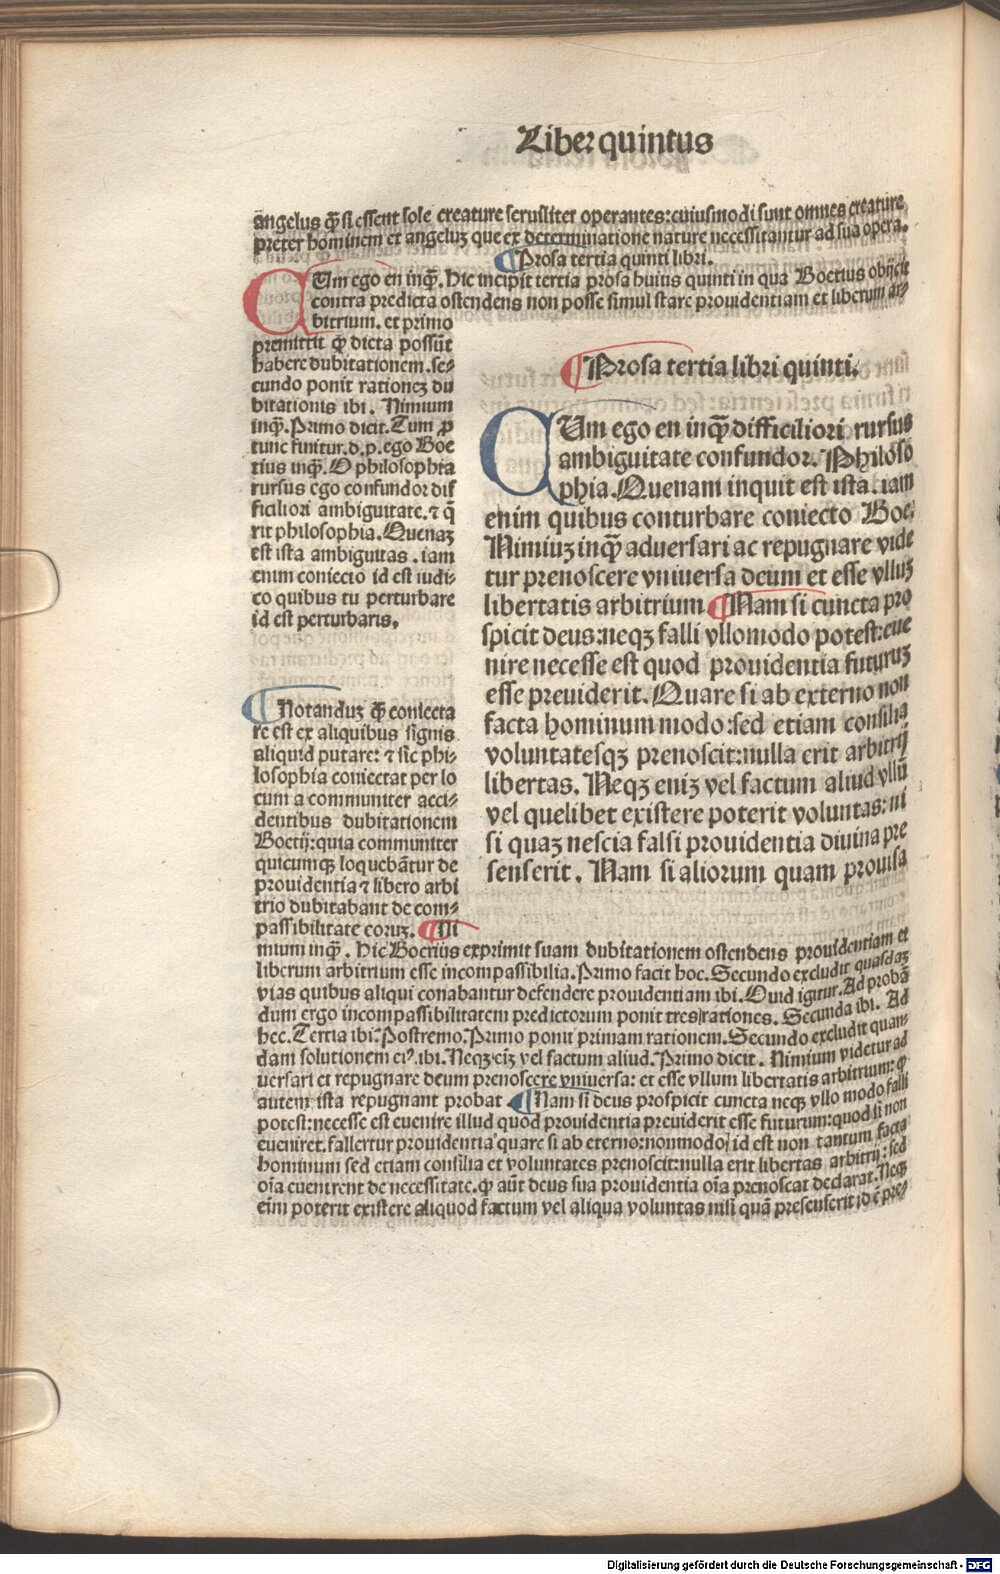 Liber quintus
angelus qͥ si essent sole creature seruiliter operantes: cuiusmodi sunt omnes creature
preter hominem et angeluꝫ que ex determinatione nature necessitantur ad sua opera.
¶Prosa tertia quinti libri.
CUm ego en inqͥ. Hic incipit tertia prosa huius quinti in qua Boetius obijcit
contra predicta ostendens non posse simul stare prouidentiam et liberum ar⸗
bitrium. et primo
premittit qͥ dicta possūt
habere dubitationem. se⸗
cundo ponit rationeꝫ du
bitationis ibi. Nimium
inqͥ. Primo dicit. Tum ꝓ
tunc finitur. d. p. ego Boe
tius inqͥ. O philosophia
rursus ego confundor dif
ficiliori ambiguitate. ⁊ q̄
rit philosophia. Quenaꝫ
est ista ambiguitas . iam
enim coniecto id est iudi⸗
co quibus tu perturbare
id est perturbaris.
¶Notanduꝫ qͥ coniecta
re est ex aliquibus signis
aliquid putare: ⁊ sic phi⸗
losophia coniectat per lo
cum a communiter acci⸗
dentibus dubitationem
Boetij: quia communiter
quicumqꝫ loquebātur de
prouidentia ⁊ libero arbi
trio dubitabant de com⸗
passibilitate eoruꝫ. ¶Ni
¶Prosa tertia libri quinti.
CUm ego en inqͥ difficiliori rursus
ambiguitate confundor. Philoso
phia. Quenam inquit est ista. iam
enim quibus conturbare coniecto Boe.
Nimiuꝫ inqͥ aduersari ac repugnare vide
tur prenoscere vniuersa deum et esse vlluꝫ
libertatis arbitrium ¶Nam si cuncta pro
spicit deus: neqꝫ falli vllomodo potest: eue
nire necesse est quod prouidentia futuruꝫ
esse preuiderit. Quare si ab externo non
facta hominum modo: sed etiam consilia
voluntatesqꝫ prenoscit: nulla erit arbitrij
libertas. Neqꝫ eniꝫ vel factum aliud vllū
vel quelibet existere poterit voluntas: ni
si quaꝫ nescia falsi prouidentia diuina pre
senserit. Nam si aliorum quam prouisa
mium inqͥ. Hic Boetius exprimit suam dubitationem ostendens prouidentiam et
liberum arbitrium esse incompassibilia. Primo facit hoc. Secundo excludit quasdaꝫ
vias quibus aliqui conabantur defendere prouidentiam ibi. Quid igitur. Ad probā
dum ergo incompassibilitatem predictorum ponit tres rationes. Secunda ibi. Ad
hec. Tertia ibi. Postremo. Primo ponit primam rationem. Secundo excludit quan⸗
dam solutionem eiꝰ. ibi. Neqꝫ eīꝫ vel factum aliud. Primo dicit . Nimium videtur ad
uersari et repugnare deum prenoscere vniuersa: et esse vllum libertatis arbitrium: qͥ
autem ista repugnant probat ¶Nam si deus prospicit cuncta neqꝫ vllo modo falli
potest: necesse est euenire illud quod prouidentia preuiderit esse futurum: quod si non
eueniret. fallertur prouidentia quare si ab eterno: nonmodo id est non tantum facta
hominum sed etiam consilia et voluntates prenoscit: nulla erit libertas arbitrij: sed
oīa euenirent de necessitate. qͥ aūt deus sua prouidentia oīa prenoscat declarat. Neqꝫ
eīm poterit existere aliquod factum vel aliqua voluntas nisi quā presenserit id ē pre⸗
Digitalisierung gefördert durch die Deutsche Forschungsgemeinschaft - DFG